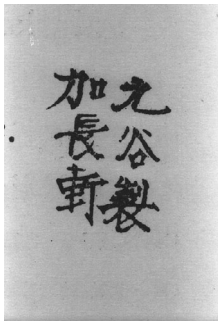 九谷製
加長軒